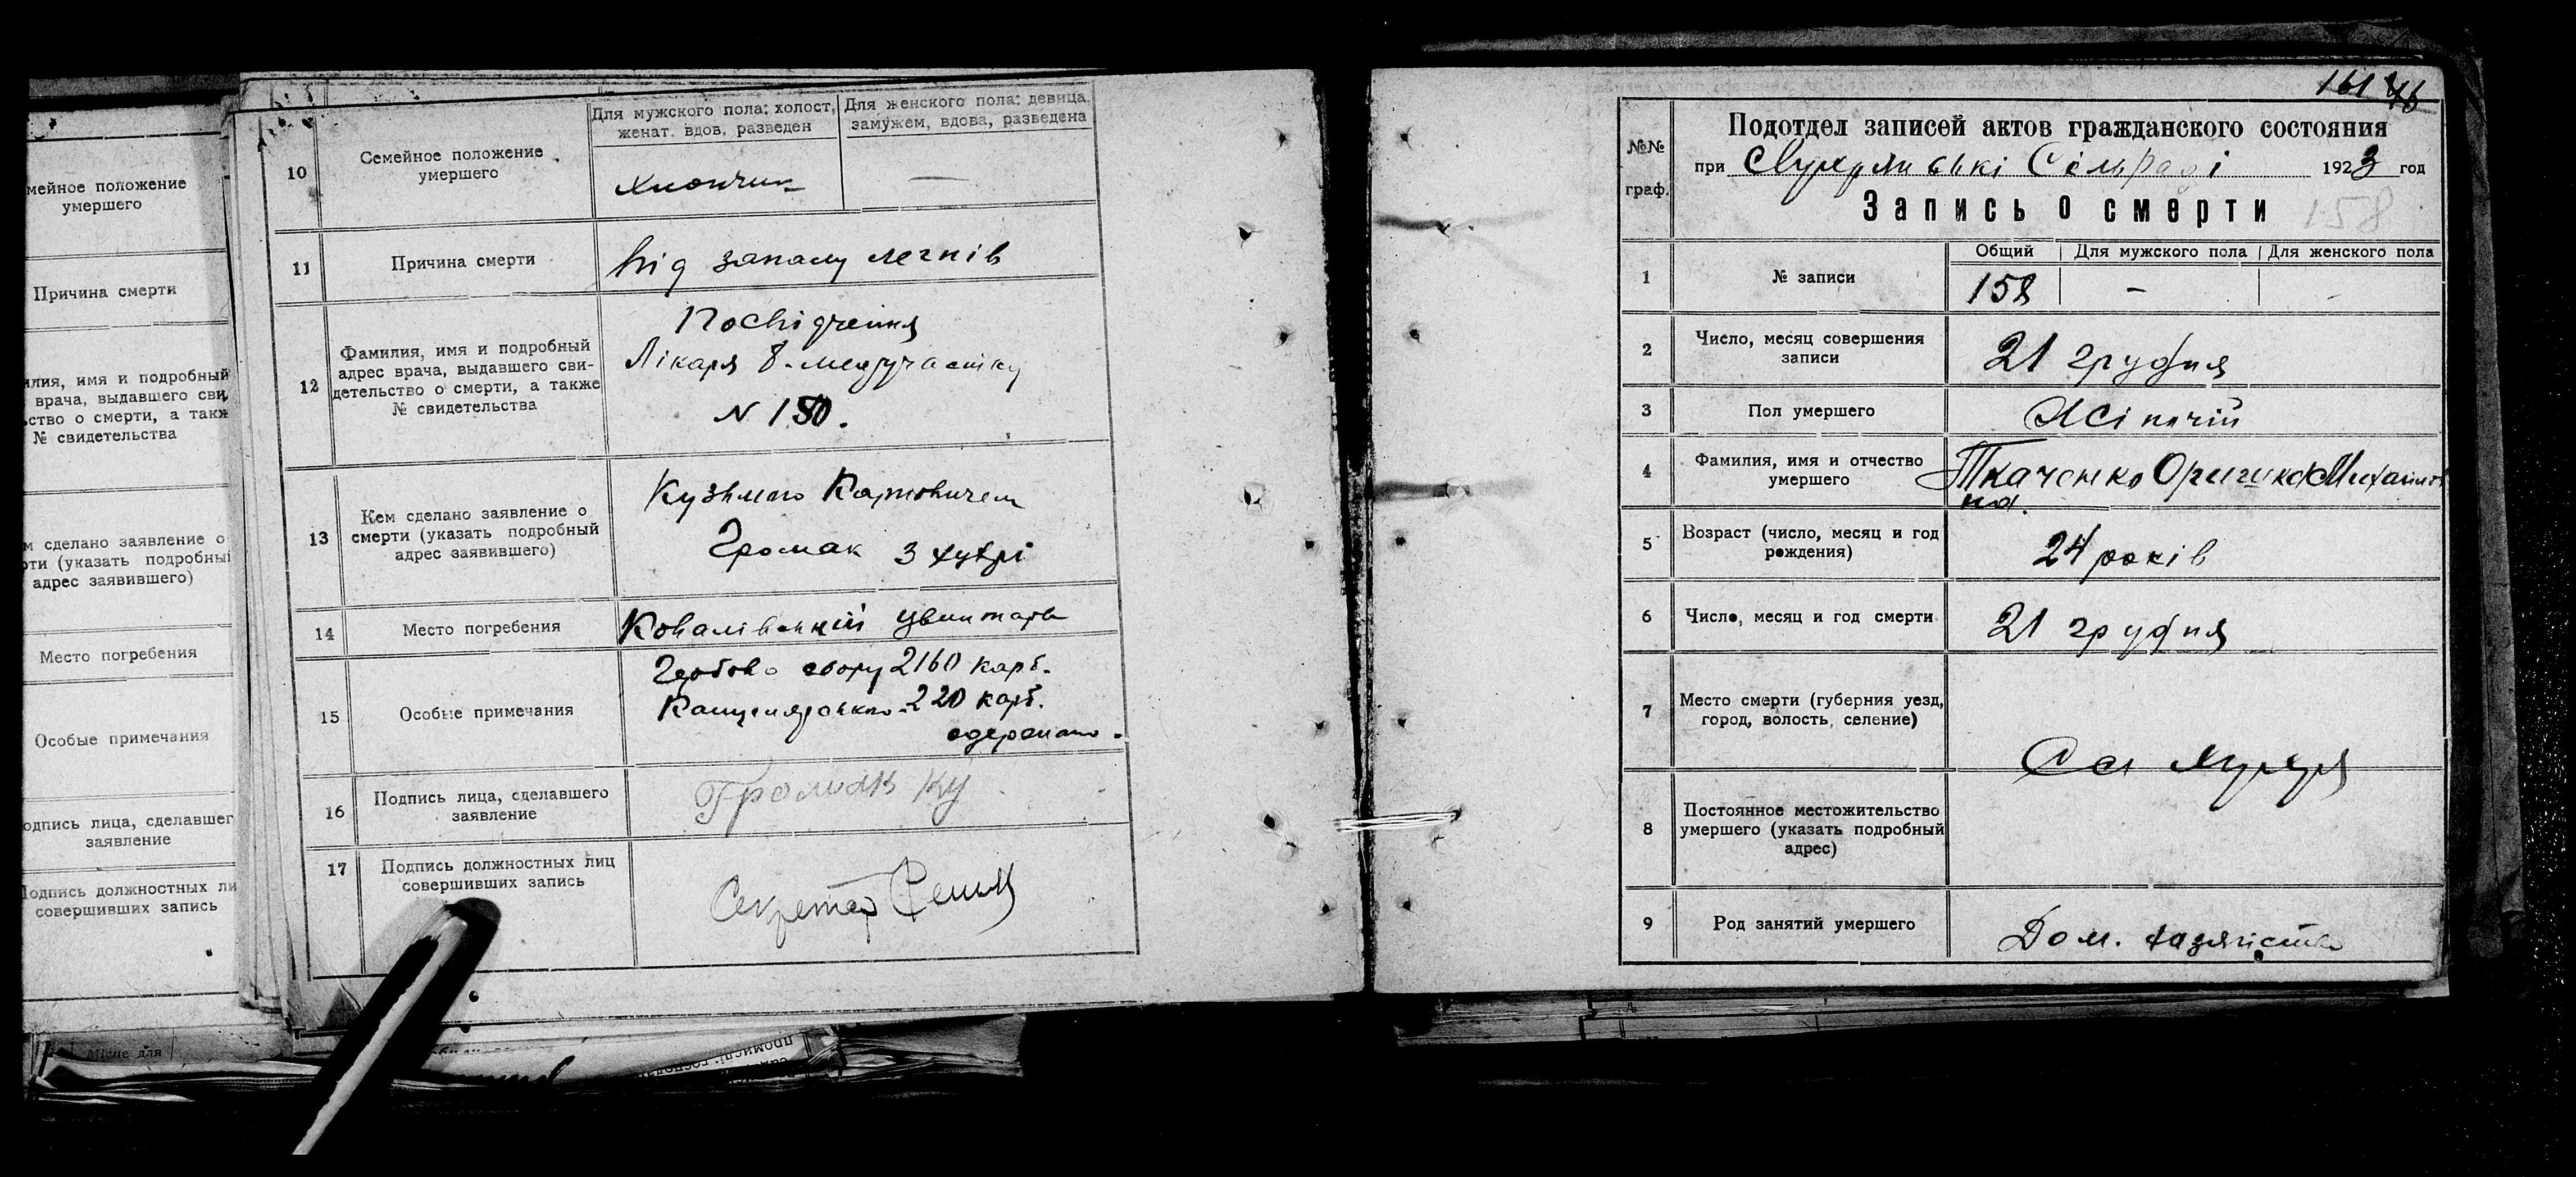 мейное положение
умершего
Причина смерти
илия, имя и подробный
врача, выдавшего сви
ство о смерти, а такж
№ свидетельства
м сделано заявление о
рти (указать подробны
адрес заявившего)
Место погребения
Особые примечания
одпись лица, сделавшег
заявление
Подпись должностных ли
совершивших запись
Місце для
10
Семейное положение
умершего
Для мужского пола: холост,
женат. вдов, разведен
Для женского пола: девица,
замужем, вдова, разведена
хлопчик
—
11
Причина смерти
від запалу легнів
12
Фамилия, имя и подробный
адрес врача, выдавшего сви-
детельство о смерти, а также
№ свидетельства
Посвідчення
Лікаря 8-медучастку
N 150.
13
Кем сделано заявление о
смерти (указать подробный
адрес заявившего)
Кузьмою Карповичем
Громак з хутрі
14
Место погребения
Ковалівський цвинтарь
15
Особые примечания
Гербово збору 2160 карб.
Канцелярсько-220 карб.
одержано.
16
Подпись лица, сделавшего
заявление
Громак Ку
17
Подпись должностных лиц
совершивших запись
Секретар
161 46
№№
граф.
Подотдел записей актов гражданского состояния
при Сільраді 1923 год
Запись о смерти 158
1
№ записи
Общий
Для мужского пола
Для женского пола
158
–
-
2
Число, месяц совершения
записи
21 грудня
3
Пол умершего
Жіночій
4
Фамилия, имя и отчество
умершего
Ткаченко Оришка Михайлов
на.
5
Возраст (число, месяц и год
рождения)
24 років
6
Число, месяц и год смерти
21 грудня
7
Место смерти (губерния уезд,
город, волость, селение)
8
Постоянное местожительство
умершего (указать подробный
адрес)
9
Род занятий умершего
Дом. хазяйство